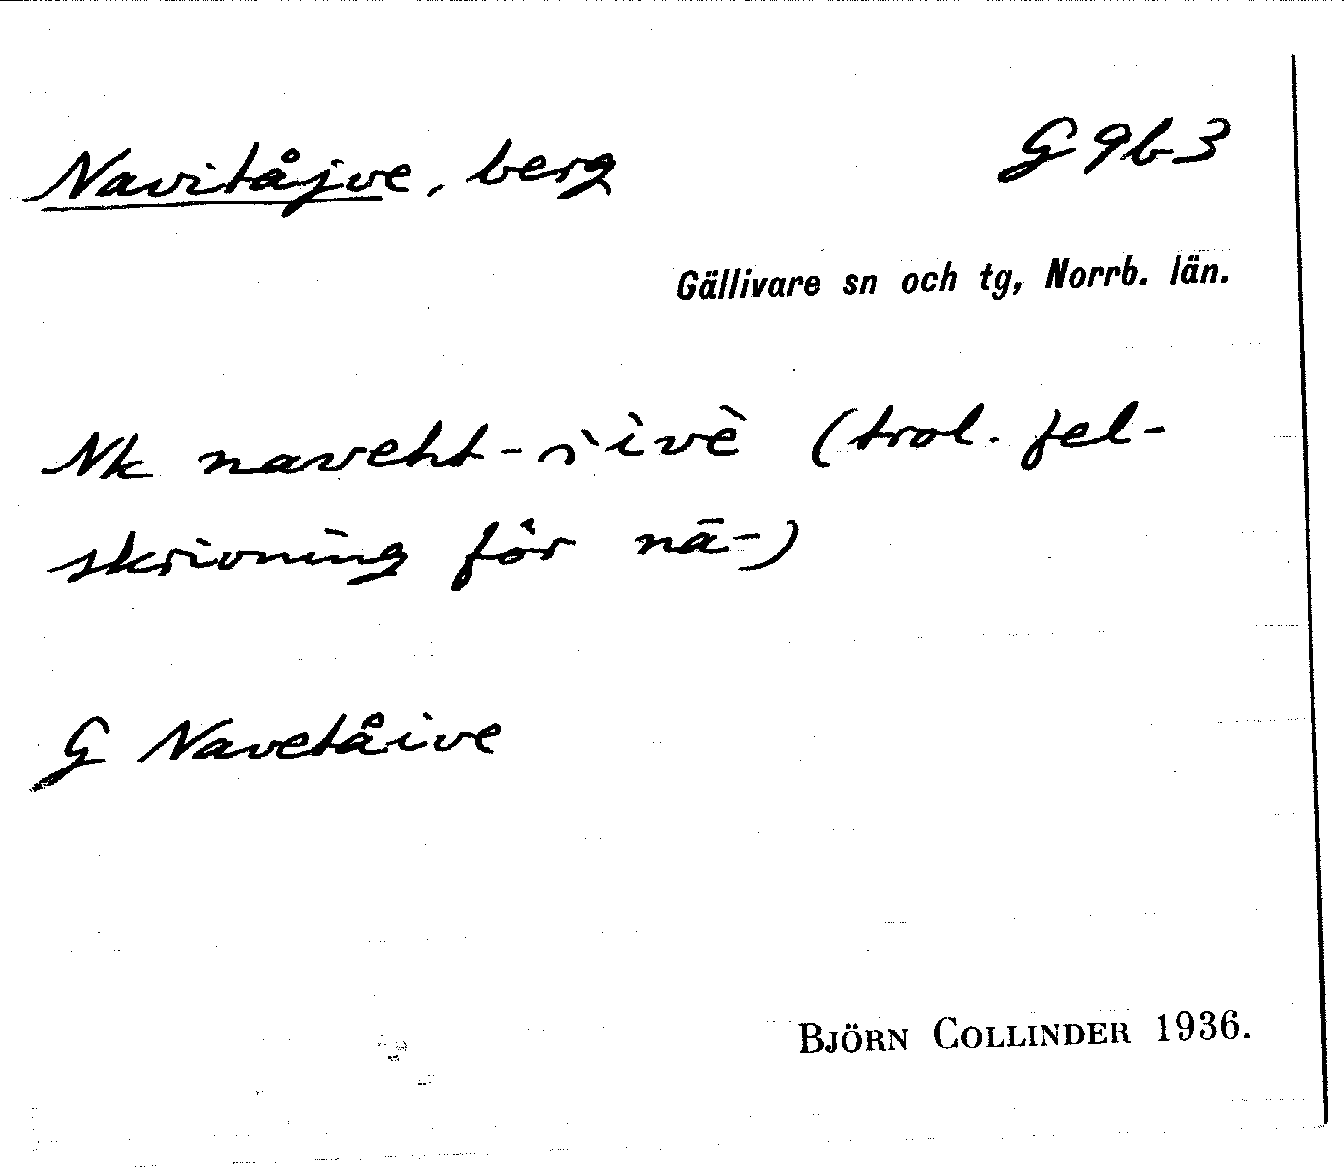 Navitåjve, berg
G 9b3
Gällivare sn och tg, Norrb. län.
Nk naveht- (trol. fel-
skrivning för nā-)
G Navetåive
BJÖRN COLLINDER 1936.